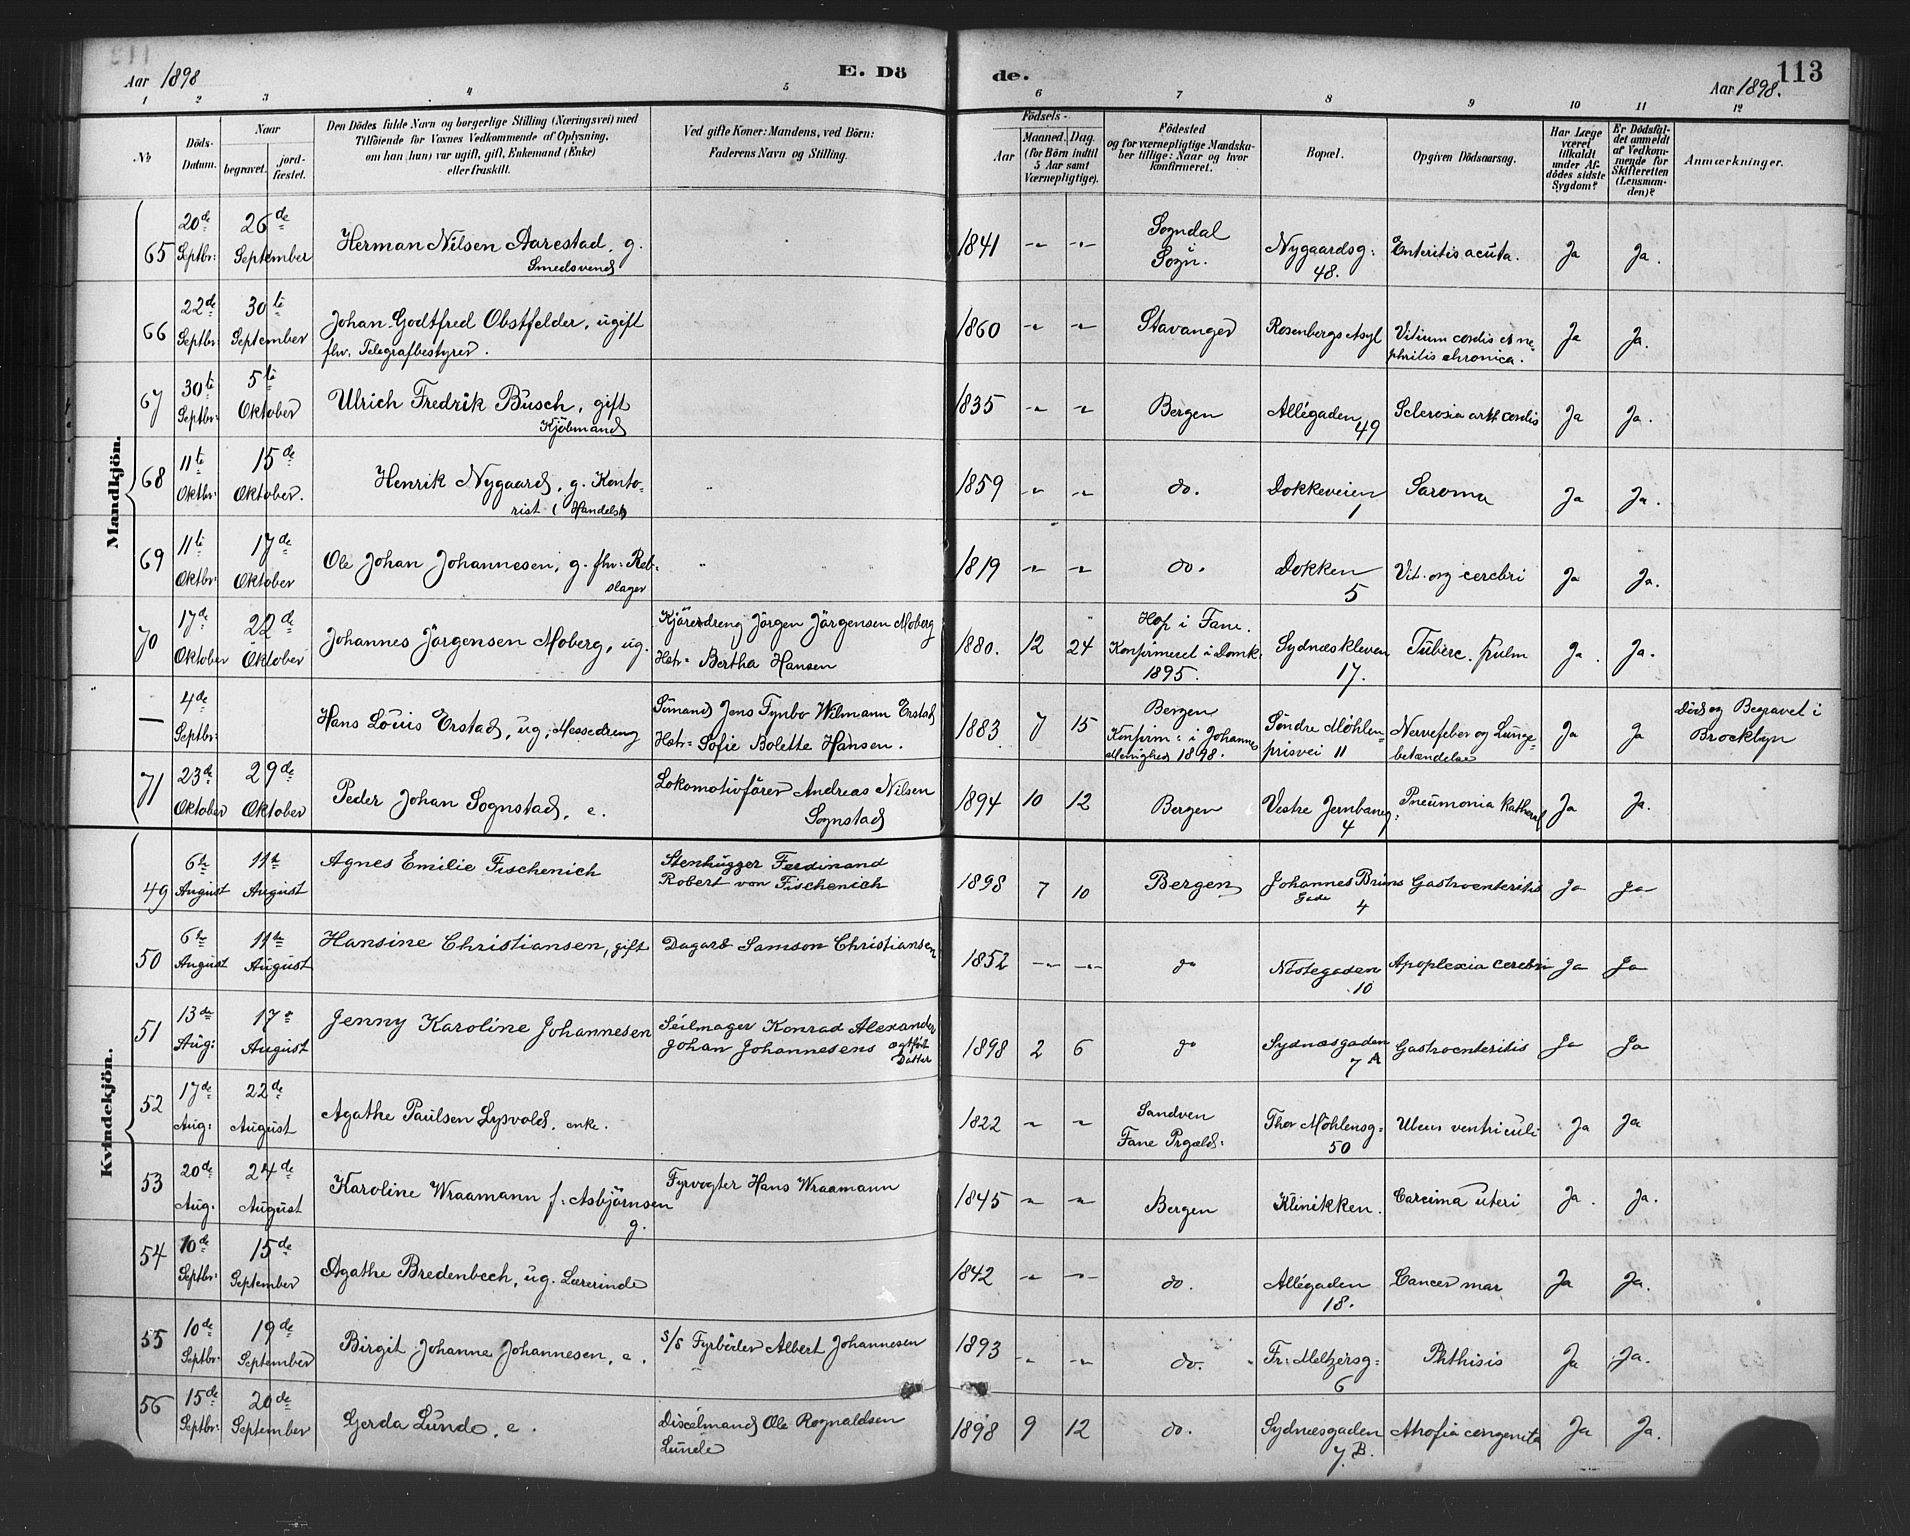 Aar 1898
E. Dö
de.
Aar 1898.
113
1 2 3 4 5 6 7 8 9 10 11 12
No
Döds-Datum.
Naar
begravet.
jord-fæstet.
Den Dödes fulde Navn og borgerlige Stilling (Næringsvei) med
Tilföiende for Voxnes Vedkommende af Oplysning,
om han (hun) var ugift, gift, Enkemand (Enke)
eller fraskilt.
Ved gifte Koner: Mandens, ved Börn:
Faderens Navn og Stilling.
Födsels-
Aar
Maaned. Dag.
(for Börn indtil
5 Aar samt
Værnepligtige).
Födested
og for værnepligtige Mandska-
ber tillige: Naar og hvor
konfirmeret.
Bopæl.
Opgiven Dödsaarsag.
Har Læge
været
tilkaldt
under Af-
dödes sidste
Sygdom?
Er Dödsfal-
det anmeldt
af Vedkom-
mende for
Skifteretten
(Lensman-
den)?
Anmærkninger.
Mandkjön.
65 20de Septbr: 26de September Herman Nilsen Aarestad, g. Smedsvend 1841 -"- -"- Sogndal i Sogn. Nygaardsg: 48. Enteritis acuta. Ja Ja.
66 22de Septbr: 30te September Johan Godtfred Obstfelder, ugift fhv. Telegrafbestyrer. 1860 -"- -"- Stavanger Rosenbergs Asyl Vitium cordis et ne-phritis chronica. Ja Ja.
67 30te Septbr: 5te Oktober Ulrich Fredrik Busch, gift Kjöbmand 1835 -"- -"- Bergen Allégaden 49 Sclerosia arth cordis Ja Ja.
68 11te Oktbr: 15de Oktober. Henrik Nygaard, g. Konto-rist i Handelsh 1859 -"- -"- do. Dokkeveien 1 Saroma Ja Ja.
69 11te Oktbr: 17de Oktober Ole Johan Johannesen, g. fhv. Reb-slager 1819 -"- -"- do. Dokken 5 Vit. org cerebri Ja Ja.
70 17de Oktober 22de Oktober Johannes Jörgensen Moberg, ug. Kjöredreng Jörgen Jörgensen Moberg Hstr: Bertha Hansen 1880. 12 24 Hop i Fane. Konfirmeret i Domk. 1895. Sydnæskleven 17. Tuberc. pulm Ja. Ja.
— 4de Septbr: Hans Louis Erstad, ug, Messedreng Sömand Jens Fynbo Wilmann Erstad Hstr: Sofie Bolette Hansen. 1883 7 15 Bergen Konfirm: i Johannes Menighed 1898. Söndre Möhlen-prisvei 11 Nervefeber og Lunge-betændelse Ja Ja Död og Begravet i Brocklyn
71 23de Oktober 29de Oktober Peder Johan Sognstad, e. Lokomotivförer Andreas Nilsen Sognstad 1894 10 12 Bergen Vestre Jernbaneg: 4 Pneumonia Katharal Ja Ja.
Kvindekjön.
49 6te August 11te August Agnes Emilie Fischenich Stenhugger Ferdinand Robert von Fischenich 1898 7 10 Bergen Johannes Bruns Gade 4 Gastroenteritis Ja Ja
50 6te August 11te August Hansine Christiansen, gift Dagarb Samson Christiansen 1852 -"- -"- do Nöstegaden 10 Apoplexia cerebri Ja Ja
51 13de Aug: 17de August Jenny Karoline Johannesen Seilmager Konrad Alexander Johan Johannesens ægtföt Datter 1898 2 6 do Sydnæsgaden 7 A Gastroenteritis Ja Ja
52 17de Aug: 22de August Agathe Paulsen Lysvold, enke. 1822 -"- -"- Sandven Fane Prgæld: Thor Möhlensg: 50 Ulcus ventriculi Ja Ja
53 20de Aug: 24de August Karoline Wraamann f: Asbjörnsen g. Fyrvogter Hans Wraamann 1845 -"- -"- Bergen Klinikken. Carcima uteri Ja. Ja.
54 10de Septbr: 15de September Agathe Bredenbech, ug. Lærerinde 1842 -"- -"- do. Allégaden 18. Cancer mar Ja Ja.
55 10de Septbr: 19de September Birgit Johanne Johannesen, e. S/S Fyrböder Albert Johannesen 1893 -"- -"- do. Fr: Meltzersg: 6 Phthisis Ja Ja.
56 15de Septbr: 20de September Gerda Lunde, e. Diselmand Ole Rognaldsen Lunde 1898 9 12 do. Sydnæsgaden 7 B. Atrofia congenita Ja Ja.